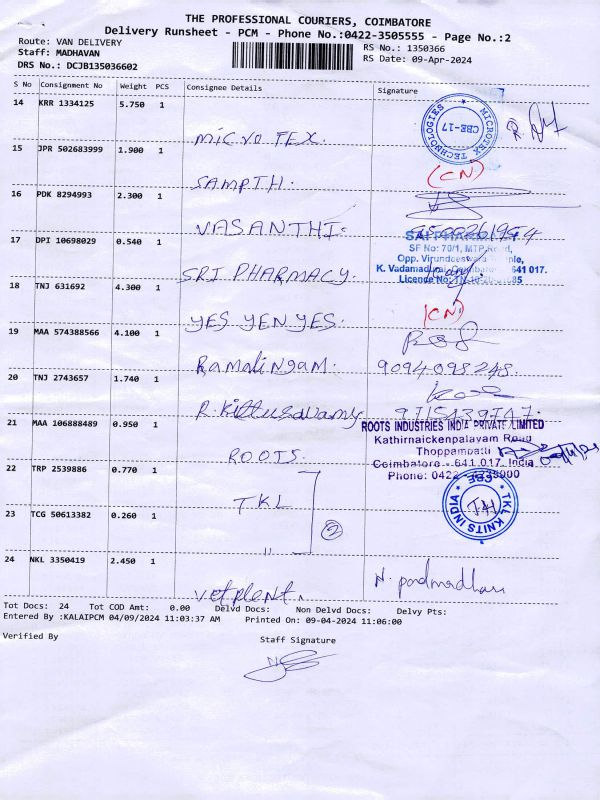 THE PROFESSIONAL COURIERS, COIMBATORE
Delivery Runsheet - PCM - Phone No.:0422-3505555 - Page No.:2
Route: VAN DELIVERY
RS No.: 1350366
Staff: MADHAVAN
RS Date: 09-Apr-2024
DRS No.: DCJB135036602
S No Consignment No Weight PCS Consignee Details Signature
14 KRR 1334125 5.750 1
MICRO TEX.
MICROTEX TECHNOLOGIES
CBE-17
15 JPR 502683999 1.900 1
SAMPTH.
(CN)
16 PDK 8294993 2.300 1
VASANTHI.
17 DPI 10698029 0.540 1
SRI PHARMACY.
SF No: 70/1, MTP Road,
Opp. Virundeeswara
K. Vadamadurai, 641 017.
Licence No:
18 TNJ 631692 4.300 1
YES YEN YES.
(CN)
19 MAA 574388566 4.100 1
Ramalingam.
9094098248.
20 TNJ 2743657 1.740 1
R. Kittuswamy
21 MAA 106888489 0.950 1
ROOTS.
ROOTS INDUSTRIES INDIA PRIVATE LIMITED
Kathirnaickenpalayam Road
Thoppampatti
Coimbatore - 641 017. India
Phone: 0422
22 TRP 2539886 0.770 1
TKL
TKL KNITS INDIA
CBE
23 TCG 50613382 0.260 1
"
2
24 NKL 3350419 2.450 1
N. padmadhari
Tot Docs: 24 Tot COD Amt: 0.00 Delvd Docs: Non Delvd Docs: Delvy Pts:
Entered By :KALAIPCM 04/09/2024 11:03:37 AM Printed On: 09-04-2024 11:06:00
Verified By Staff Signature